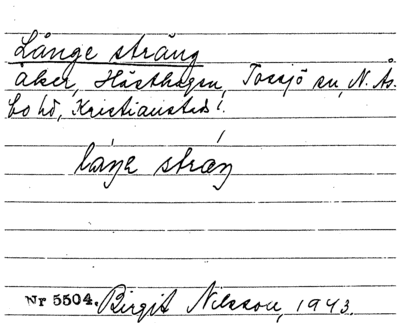 Långe sträng
åker, Hästhagen, Tossjö sn, N. Ås-
bo hd, Kristianstads l.
Nr 5504. Birgit Nilsson, 1943.